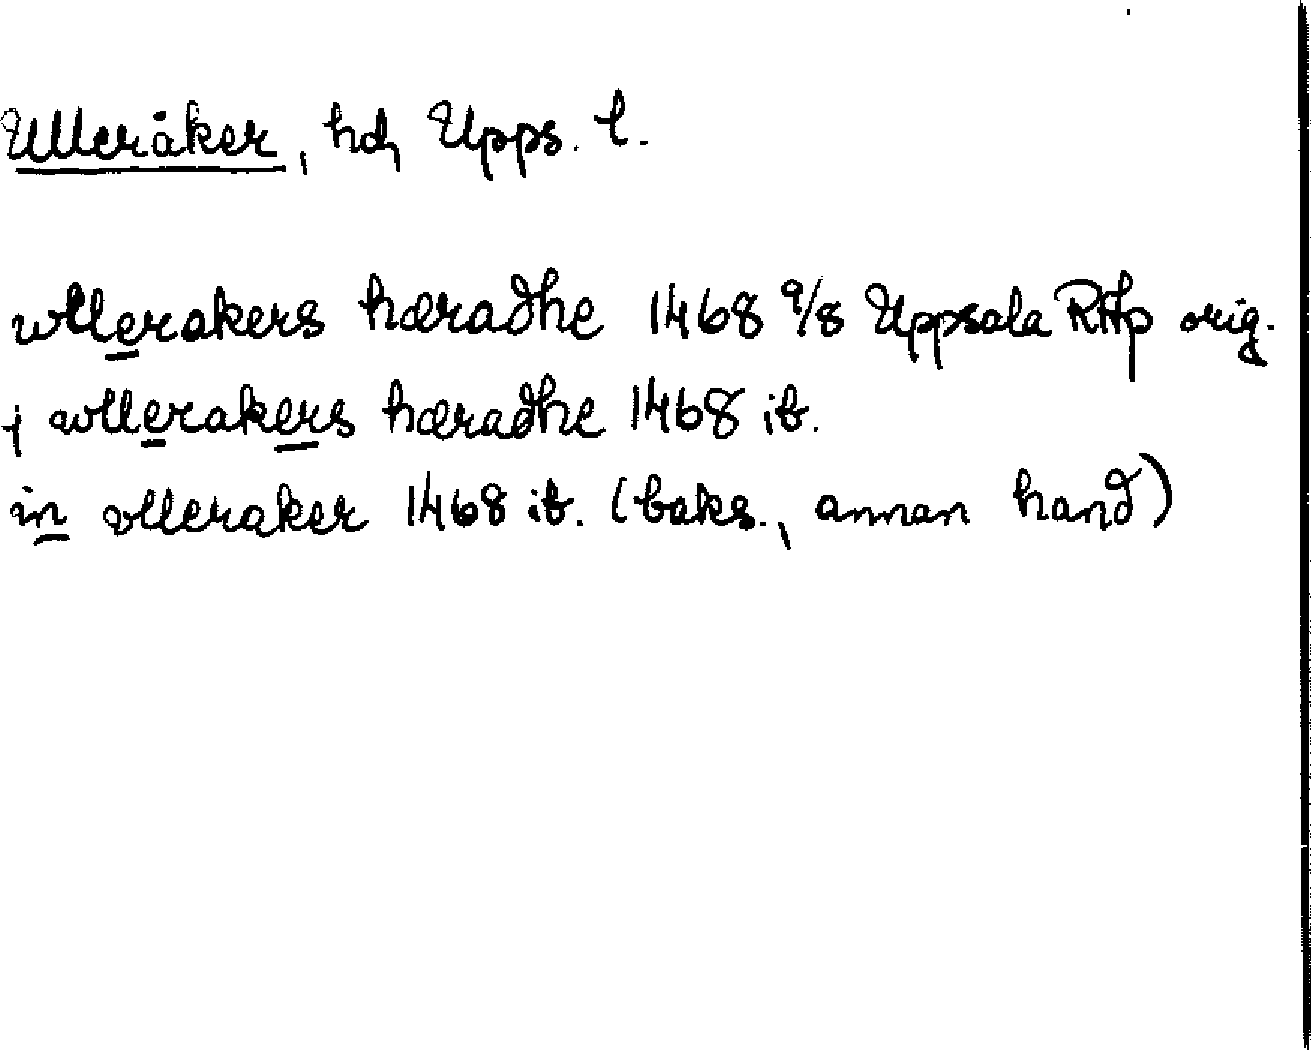 Ulleråker, hd, Upps. l.
wllerakers hæradhe 1468 9/8 Uppsala RAp orig.
i wllerakers hæradhe 1468 ib.
in vlleraker 1468 ib. (baks., annan hand)